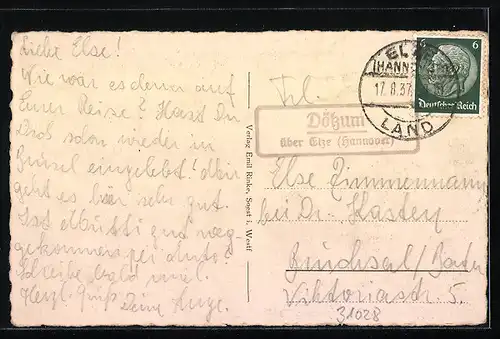 Liebe Else!
Wie war es denn auf
Eurer Reise? Hast Du
Dich schon wieder in
eingelebt! Mir
geht es hier sehr gut.
Ist Mutti gut weg-
gekommen bei Auto?
Schreibe bald mal.
Herzl. Gruß
Deine Inge.
Verlag Emil Rinke, Soest i. Westf
Frl.
Else Zimmermann
bei Dr. Kasten
Bruchsal/Baden
Viktoriastr. 5.
31028
Dötzum
über Elze (Hannover)
ELZE
(HANNOVER)
17.8.37
LAND
6 6
Deutsches Reich